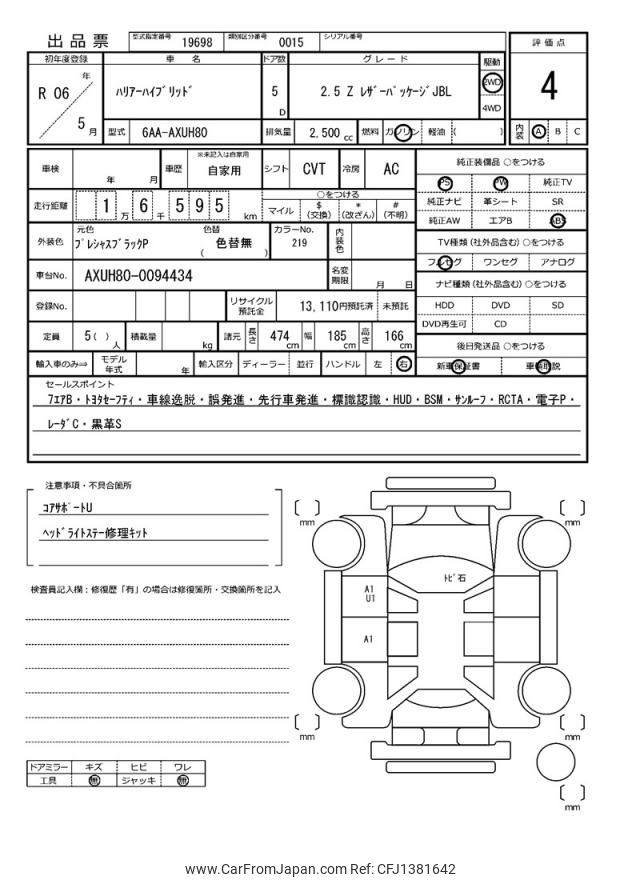 出品票 型式指定番号 19698 類別区分番号 0015 シリアル番号
初年度登録 車 名 ドア数 グレード 駆動 評価点
R 06 年 5 月 ハリアーハイブリッド 5 D 2.5 Z レザーパッケージJBL 2WD 4WD 4
型式 6AA-AXUH80 排気量 2,500 cc 燃料 ガソリン 軽油 ( ) 内装 A B C
車検 年 月 車歴 ※未記入は自家用 自家用 シフト CVT 冷房 AC
走行距離 1 万 6 千 5 9 5 km ○をつける マイル $(交換) *(改ざん) #(不明)
外装色 元色 プレシャスブラックP 色替 ( 色替無 ) カラーNo. 219 内装色
車台No. AXUH80-0094434 名変期限 月 日
登録No. リサイクル預託金 13,110円預託済 未預託
定員 5( ) 人 積載量 kg 諸元 長さ 474 cm 幅 185 cm 高さ 166 cm
輸入車のみ⇒ モデル年式 年 輸入区分 ディーラー 並行 ハンドル 左 右
純正装備品 ○をつける
PS PW 純正TV
純正ナビ 革シート SR
純正AW エアB ABS
TV種類 (社外品含む) ○をつける
フルセグ ワンセグ アナログ
ナビ種類 (社外品含む) ○をつける
HDD DVD SD
DVD再生可 CD
後日発送品 ○をつける
新車保証書 車輌取説
セールスポイント
7エアB・トヨタセーフティ・車線逸脱・誤発進・先行車発進・標識認識・HUD・BSM・サンルーフ・RCTA・電子P・
レーダC・黒革S
注意事項・不具合箇所
コアサポートU
ヘッドライトステー修理キット
検査員記入欄：修復歴「有」の場合は修復箇所・交換箇所を記入
mm
mm
トビ石
A1
U1
A1
mm
mm
mm
ドアミラー キズ ヒビ ワレ
工具 無 ジャッキ 無
www.CarFromJapan.com Ref: CFJ1381642